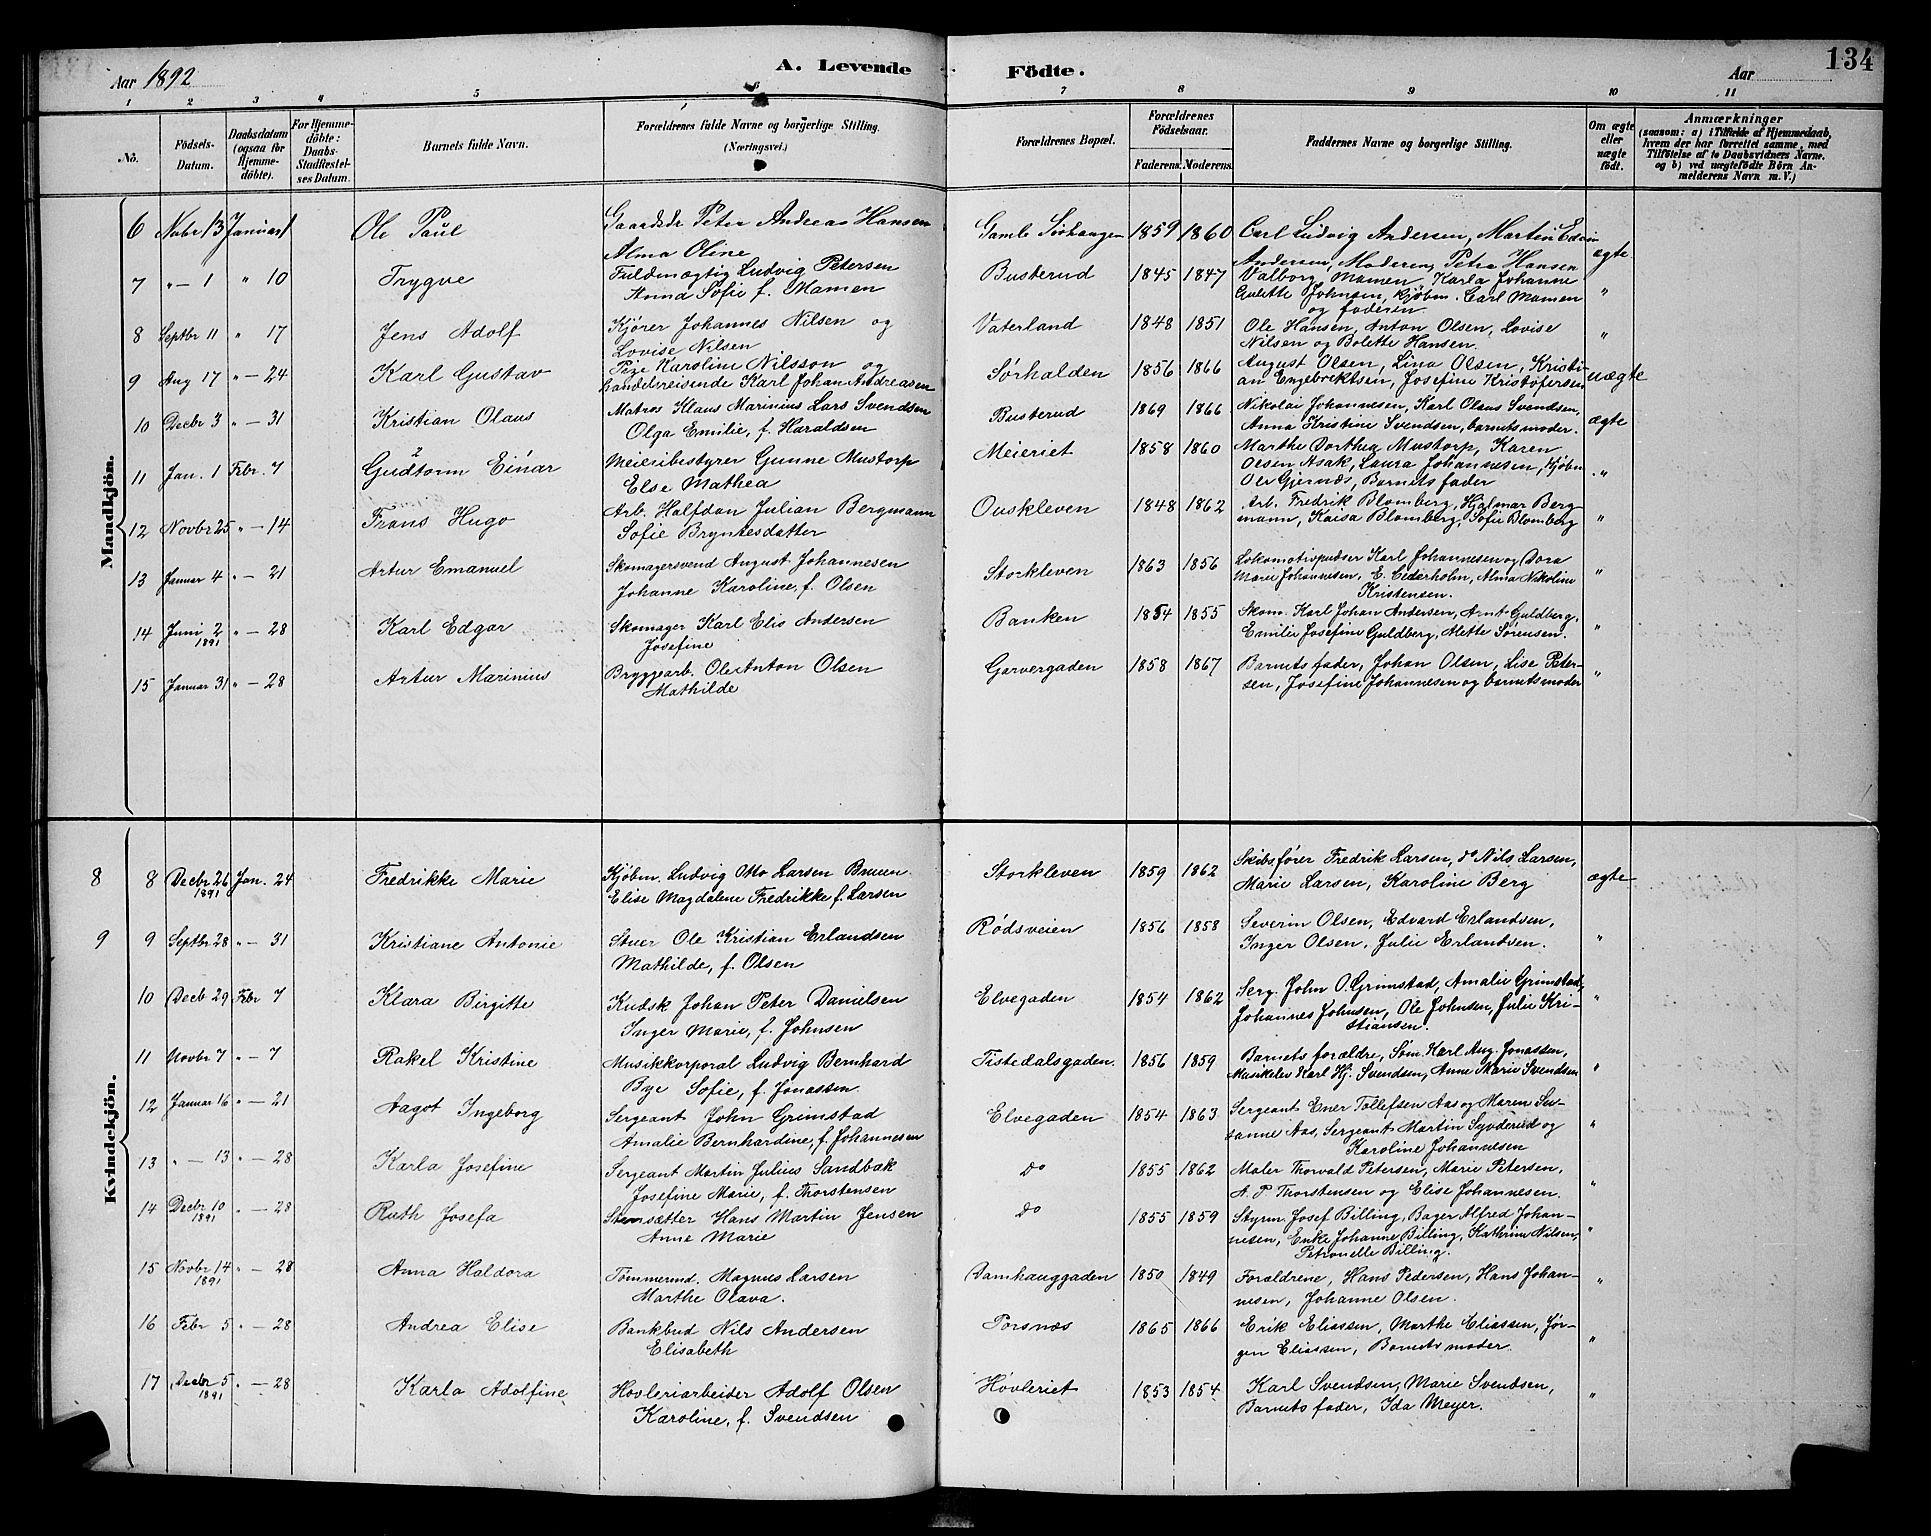 134
Aar 1892 A. Levende Födte. Aar
1 2 3 4 5 6 7 8 9 10 11
Nö.
Födsels-Datum.
Daabsdatum (ogsaa for Hjemme-döbte).
For Hjemme-döbte: Daabs-Stadfæstel-ses Datum.
Barnets fulde Navn.
Forældrenes fulde Navne og borgerlige Stilling. (Næringsvei.)
Forældrenes Bopæl.
Forældrenes Födselsaar.
Faderens. Moderens.
Faddernes Navne og borgerlige Stilling.
Om ægte eller uægte födt.
Anmærkninger
(saasom: a) i Tilfælde af Hjemmedaab, hvem der har forrettet samme, med Tilföielse af to Daabsvidners Navne, og b) ved uægtefödte Börn An-melderens Navn m. V.)
Mandkjön.
6 Novbr 13 Januar 1 Ole Paul Gaardsbr Peter Andreas Hansen Gamle Sörhaugen 1859 1860 Carl Ludvig Andersen, Martin Edvin
Alma Oline Andersen, Moderen, Petra Hansen ægte
7 " — 1 " 10 Trygve Fuldmægtig Ludvig Petersen Busterud 1845 1847 Valborg Mamen, Karla Johanne
Anna Sofie f. Mamen Gulette Johnsen, Kjöbm. Carl Mamen "
og faderen
8 Septbr 11 " 17 Jens Adolf Kjörer Johannes Nilsen og Vaterland 1848 1851 Ole Hansen, Anton Olsen, Lovise
Lovise Nilsen Nilsen og Bolette Hansen. "
9 Aug 17 " — 24 Karl Gustav Pige Karoline Nilsson og Sørhalden 1856 1866 August Olsen, Lina Olsen, Kristi-
handelsreisende Karl Johan Andreasen an Engebrektsen, Josefine Kristofersen uægte
10 Decbr 3 " — 31 Kristian Olaus Matros Klaus Marinius Lars Svendsen Busterud 1869 1866 Nikolai Johannesen, Karl Olaus Svendsen,
Olga Emilie, f. Haraldsen Anna Kristine Svendsen, barnets moder. ægte
11 Jan. 1 Febr. 7 Gudtorm Einar Meieribestyrer Gunne Mustorp Meieriet 1858 1860 Marthe Dorthea Mustorp, Karen
Else Mathea Olsen Asak, Laura Johannesen, Kjöbm
Ole Gjernæs, Barnets fader "
12 Novbr 25 " — 14 Frans Hugo Arb. Halfdan Julian Bergmann Ouskleven 1848 1862 Arb. Fredrik Blomberg, Hjalmar Berg-
Sofie Bryntesdatter mann, Kaisa Blomberg, Sofie Blomberg "
13 Januar 4 " — 21 Artur Emanuel Skomagersvend August Johannesen Storkleven 1863 1856 Lokomotivpudser Karl Johannesen og Dora
Johanne Karoline, f. Olsen Marie Johannesen, E. Cederholm, Alma Nikoline "
Kristensen.
14 Juni 2 1891 " — 28 Karl Edgar Skomager Karl Elis Andersen Banken 1854 1855 Skom. Karl Johan Andersen, Arnt Guldberg,
Josefine Emilie Josefine Guldberg, Alette Sörensen. "
15 Januar 31 " — 28 Artur Marinius Bryggearb. Ole Anton Olsen Garvergaden 1858 1867 Barnets fader, Johan Olsen, Lise Peter-
Mathilde sen, Josefine Johannesen og barnets moder "
Kvindekjön.
8 8 Decbr 26 1891 Jan. 24 Fredrikke Marie Kjöbm. Ludvig Otto Larsen Bruen. Storkleven 1859 1862 Skibsförer Fredrik Larsen, do Nils Larsen,
Elise Magdalene Fredrikke f. Larsen Marie Larsen, Karoline Berg ægte
9 9 Septbr 28 " — 31 Kristiane Antonie Stuer Ole Kristian Erlandsen Rödsveien 1856 1858 Severin Olsen, Edvard Erlandsen,
Mathilde, f. Olsen Inger Olsen, Julie Erlandsen. "
10 Decb 29 Febr 7 Klara Birgitte Kudsk Johan Peter Danielsen Elvegaden 1854 1862 Serg. John O. Grimstad, Amalie Grimstad,
Inger Marie, f. Johnsen Johannes Johnsen, Ole Johnsen, Julie Kri- "
stiansen.
11 Novbr 7 " — 7 Rakel Kristine Musikkorporal Ludvig Bernhard Tistedalsgaden. 1856 1859 Barnets forældre, Söm. Karl Aug. Jonassen,
Bye Sofie, f. Jonassen Musikelev Karl Hj. Svendsen, Anne Marie Svendsen "
12 Januar 16 " — 21 Aagot Ingeborg Sergeant John Grimstad Elvegaden 1854 1863 Sergeant Ener Tollefsen Aas og Maren Su-
Amalie Bernhardine, f. Johannesen sanne Aas, Sergeant Martin Syverud og "
Karoline Johannesen
13 " — 13 " — 28 Karla Josefine Sergeant Martin Julius Sandbak do 1855 1862 Maler Thorvald Petersen, Marie Petersen,
Josefine Marie, f. Thorstensen A. P. Thorstensen og Elise Johannesen. "
14 Decbr 10 1891 " — 28 Ruth Josefa Stensætter Hans Martin Jensen do 1855 1859 Styrm. Josef Billing, Bager Alfred Johan-
Anne Marie nesen, Enke Johanne Billing, Kathrine Nilsen, "
Petronelle Billing.
15 Novbr 14 1891 " — 28 Anna Haldora Tömmermd. Magnus Larsen Damhauggaden 1850 1849 Forældrene, Hans Pedersen, Hans Johan-
Marthe Olava. nesen, Johanne Olsen. "
16 Febr 5 " — 28 Andrea Elise Bankbud Nils Andersen Porsnæs 1865 1866 Erik Eliassen, Marthe Eliassen, Jör-
Elisabeth gen Eliassen, Barnets moder. "
17 Decbr 5 1891 " — 28 Karla Adolfine Hövleriarbeider Adolf Olsen Hövleriet 1853 1854 Karl Svendsen, Marie Svendsen,
Karoline, f. Svendsen Barnets fader, Ida Meyer. "